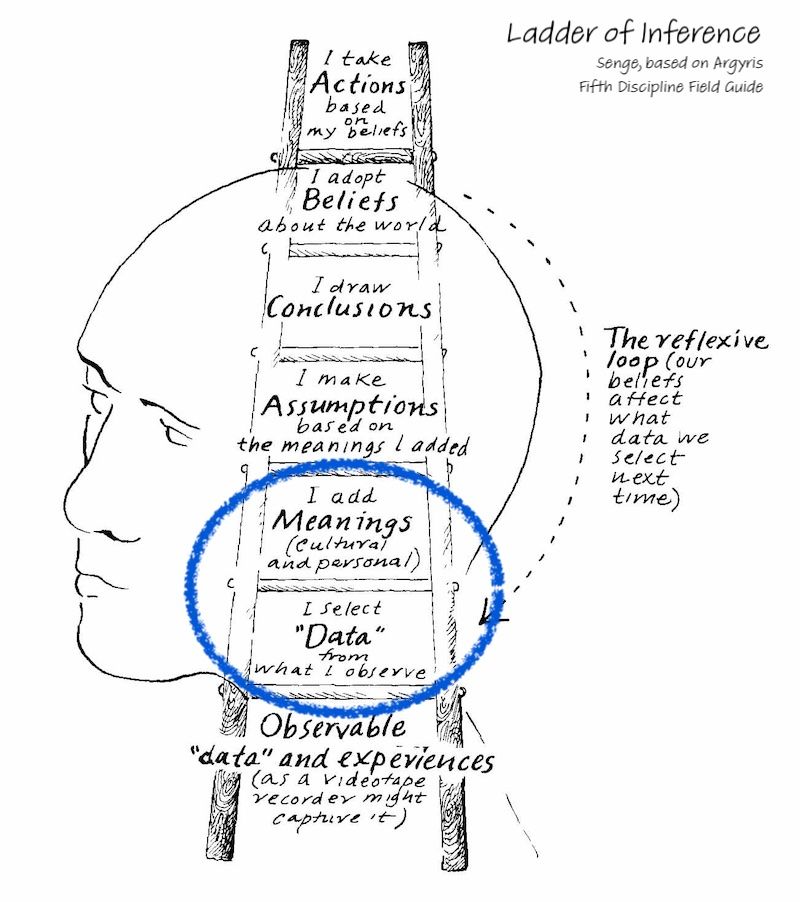 Ladder of Inference
Senge, based on Argyris
Fifth Discipline Field Guide
I take
Actions
based
on
my beliefs
I adopt
Beliefs
about the world
I draw
Conclusions
I make
Assumptions
based on
the meanings I added
I add
Meanings
(cultural
and personal)
I select
"Data"
from
what I observe
Observable
"data" and experiences
(as a videotape
recorder might
capture it)
The reflexive
loop (our
beliefs
affect
what
data we
select
next
time)